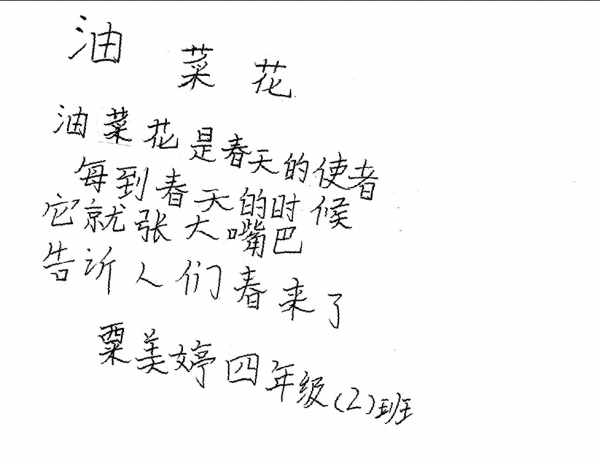 油菜花
油菜花是春天的使者
每到春天的时候
它就张大嘴巴
告诉人们春来了
粟美婷四年级(2)班